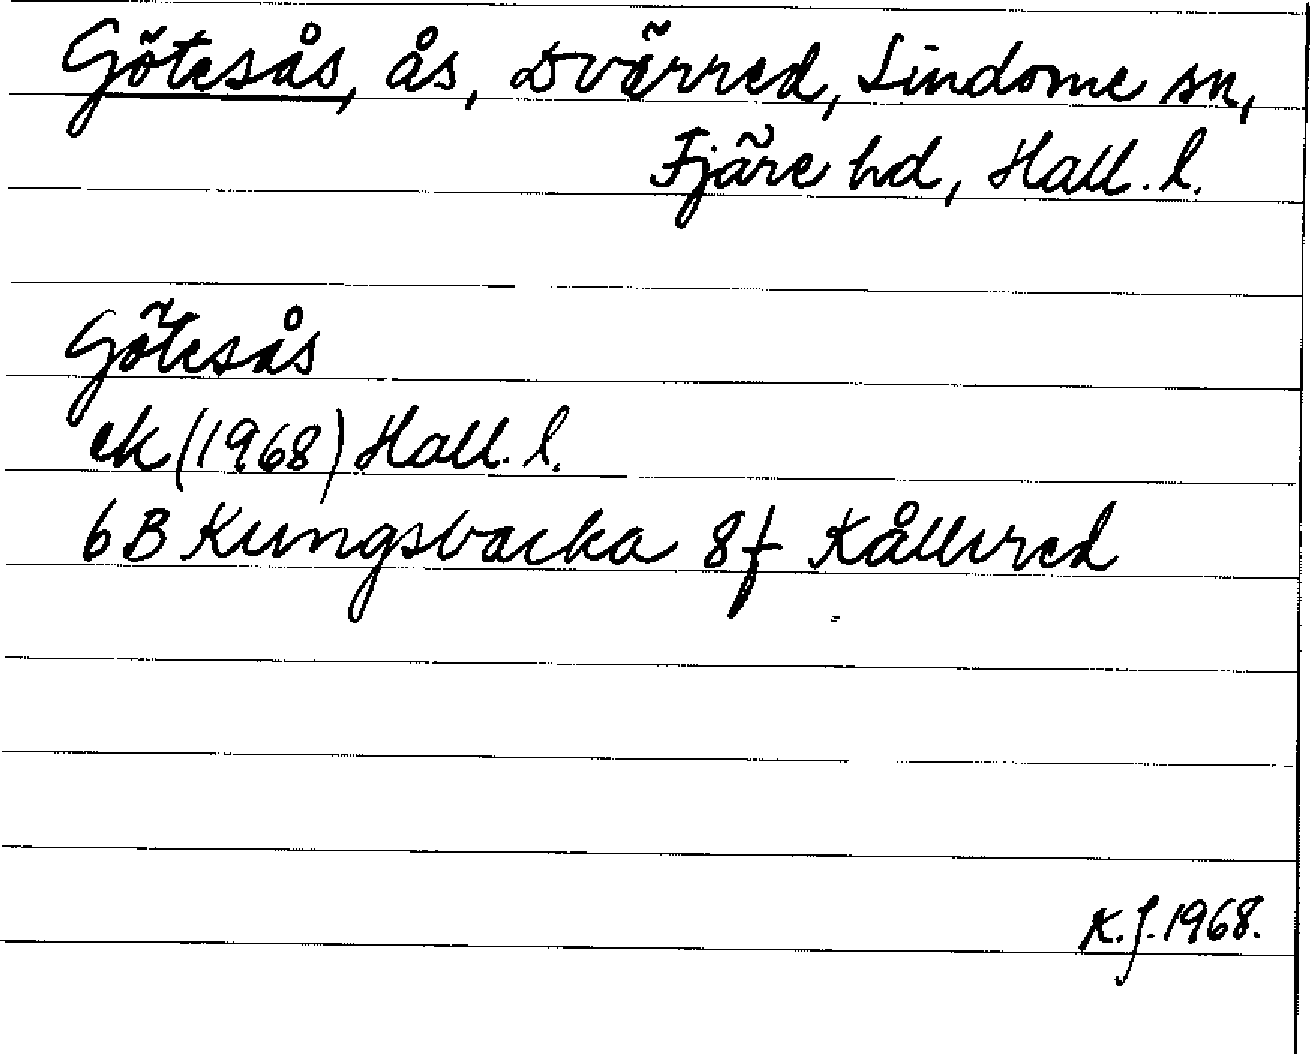 Götesås, ås, Dvärred, Lindome sn,
Fjäre hd, Hall. l.
Götesås
ek (1968) Hall. l.
6B Kungsbacka 8f Kållered
K.J. 1968.